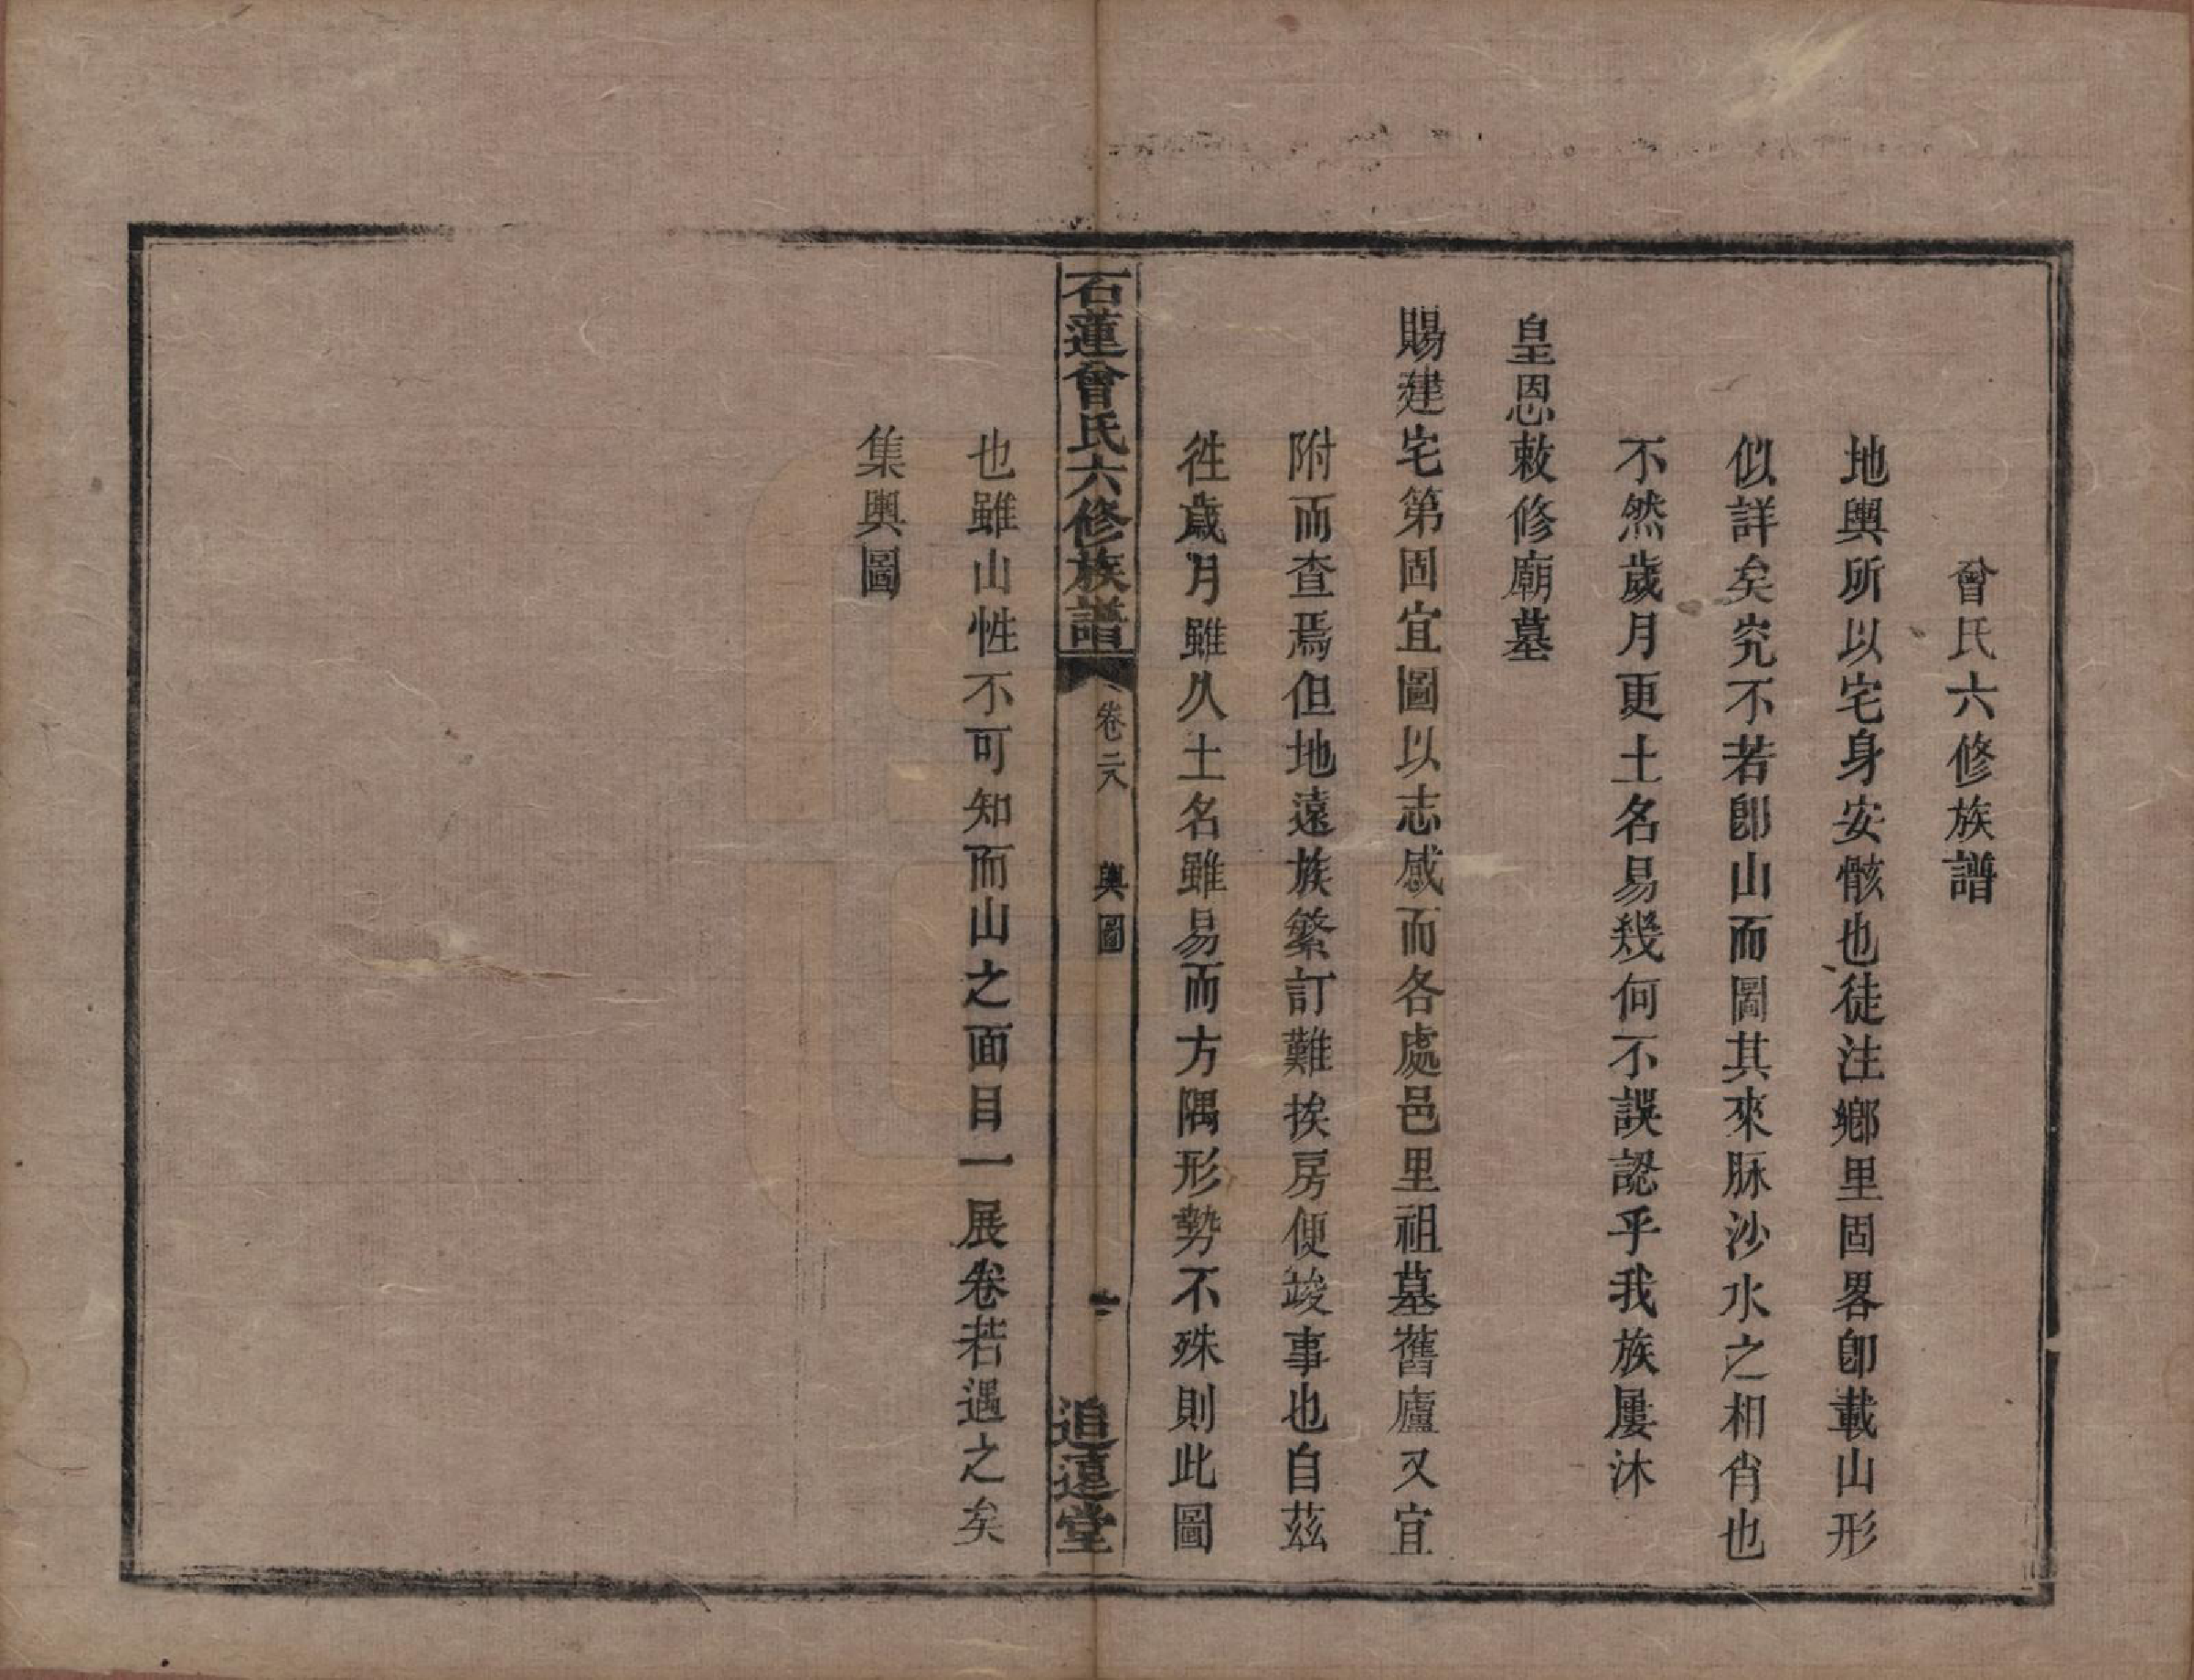 曾氏六修族譜
地輿所以宅身安骸也徒注鄉里固畧卽載山形
似詳矣究不若卽山而圖其來脉沙水之相肖也
不然歲月更土名易幾何不誤認乎我族屢沐
皇恩敕修廟墓
賜建宅第固宜圖以志感而各處邑里祖墓舊廬又宜
附而查焉但地遠族繁訂難挨房便竣事也自茲
徃歲月雖久土名雖易而方隅形勢不殊則此圖
石蓮曾氏六修族譜 卷二八 輿圖 一 追遠堂
也雖山性不可知而山之面目一展卷若遇之矣
集輿圖